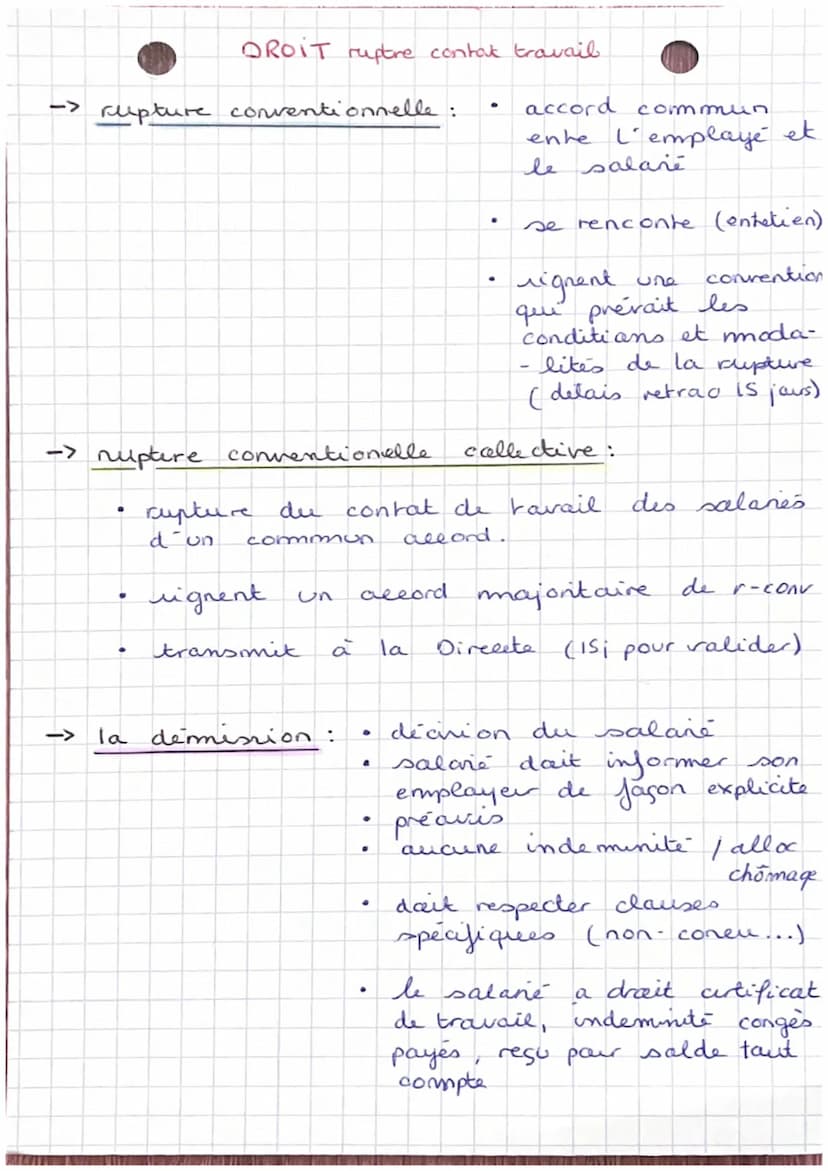 DROIT ruptre contrat travail
-> rupture conventionnelle : • accord commun
entre l'employé et
le salarié
• se rencontre (entretien)
• signent une convention
qui prévoit les
conditions et moda-
- lités de la rupture
( délais retrac 15 jours)
-> rupture conventionelle collective :
• rupture du contrat de travail des salariés
d'un commun accord.
• signent un accord majoritaire de r-conv
• transmit à la Direccte (15j pour valider)
-> la démission : • décision du salarié
• salarié doit informer son
employeur de façon explicite
• préavis
• aucune indeminité / alloc
chômage
• doit respecter clauses
spécifiques (non-concu...)
• le salarié a droit certificat
de travail, indemnité congés
payés, reçu pour solde tout
compte